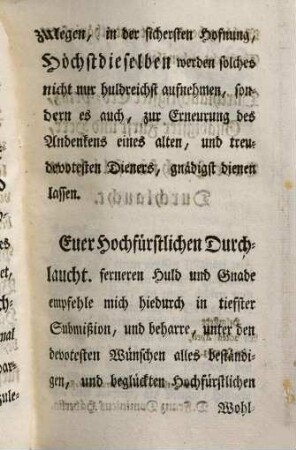 zulegen, in der sichersten Hofnung,
Höchstdieselben werden solches
nicht nur huldreichst aufnehmen, son-
dern es auch, zur Erneurung des
Andenkens eines alten, und treu-
devotesten Dieners, gnädigst dienen
lassen.
Euer Hochfürstlichen Durch-
laucht. ferneren Huld und Gnade
empfehle mich hiedurch in tiefster
Submißion, und beharre, unter den
devotesten Wünschen alles beständi-
gen, und beglückten Hochfürstlichen
Wohl-